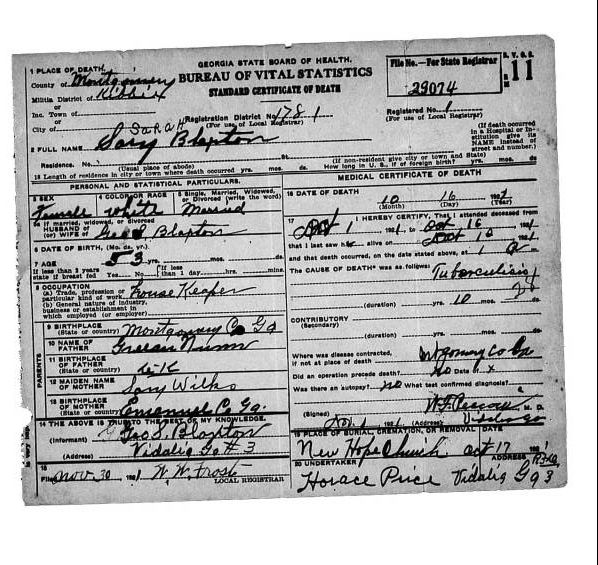 GEORGIA STATE BOARD OF HEALTH.
BUREAU OF VITAL STATISTICS
STANDARD CERTIFICATE OF DEATH
File No.—For State Registrar
29074
11
1 PLACE OF DEATH
County of Montgomery
Militia District of Kibbee
or
Inc. Town of
or
City of
Registration District No. 1781
(For use of Local Registrar)
Registered No. 1
(For use of Local Registrar)
(If death occurred in a Hospital or Institution give its NAME instead of street and number.)
Sarah
2 FULL NAME Sary Blaxton
Residence. No. St.
(Usual place of abode) (If non-resident give city or town and State)
18 Length of residence in city or town where death occurred yrs. mos. ds. How long in U. S., if of foreign birth? yrs. mos. ds.
PERSONAL AND STATISTICAL PARTICULARS.
3 SEX 4 COLOR OR RACE 5 Single, Married, Widowed, or Divorced (write the word)
Female White Married
5a If married, widowed, or divorced
HUSBAND of
(or) WIFE of Geo S Blaxton
6 DATE OF BIRTH (Mo. ds. yr.)
7 AGE 53
If less than 2 years state if breast fed Yes No If less than 1 day hrs. mins.
8 OCCUPATION
(a) Trade, profession or particular kind of work House Keaper
(b) General nature of industry, business or establishment in which employed (or employer)
9 BIRTHPLACE
(State or country) Montgomery Co Ga
10 NAME OF FATHER Nunn
11 BIRTHPLACE OF FATHER
(State or country)
12 MAIDEN NAME OF MOTHER Sary Wilks
13 BIRTHPLACE OF MOTHER
(State or country) Emanuel Co Ga.
PARENTS
14 THE ABOVE IS TRUE TO THE BEST OF MY KNOWLEDGE.
(Informant) Geo S. Blaxton
(Address) Vidalia Ga # 3
15
Filed Nov. 30 1921 W. W. Frost
LOCAL REGISTRAR
MEDICAL CERTIFICATE OF DEATH
16 DATE OF DEATH
10 16 1921
(Month) (Day) (Year)
17 I HEREBY CERTIFY, That I attended deceased from
Oct 1 1921, to Oct 16 1921
that I last saw h alive on Oct 10 1921
and that death occurred, on the date stated above, at 1
The CAUSE OF DEATH* was as follows: Tuberculisis
(duration) yrs. 10 mos. ds.
CONTRIBUTORY
(Secondary)
(duration) yrs. mos. ds.
Where was disease contracted, if not at place of death Montgomery Co Ga
Did an operation precede death? No Date of x
Was there an autopsy? No What test confirmed diagnosis?
(Signed) M. D.
Nov 1 1921 (Address) Vidalia Ga
19 PLACE OF BURIAL, CREMATION, OR REMOVAL DATE
New Hope Church oct 17 1921
20 UNDERTAKER ADDRESS
Horace Price Vidalia Ga 3